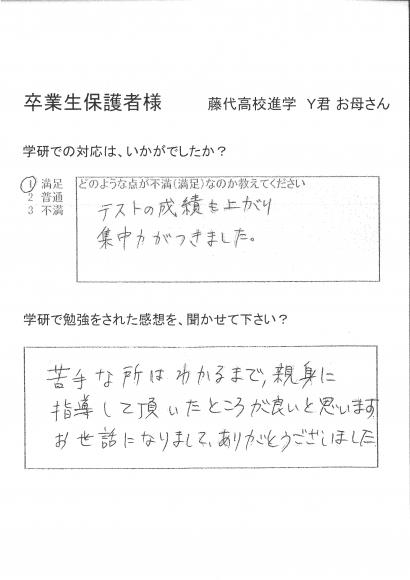 卒業生保護者様　　藤代高校進学　Y君 お母さん
学研での対応は、いかがでしたか？
1 満足
2 普通
3 不満
どのような点が不満(満足)なのか教えてください
テストの成績も上がり
集中力がつきました。
学研で勉強をされた感想を、聞かせて下さい？
苦手な所はわかるまで、親身に
指導して頂いたところが良いと思います
お世話になりまして、ありがとうございました